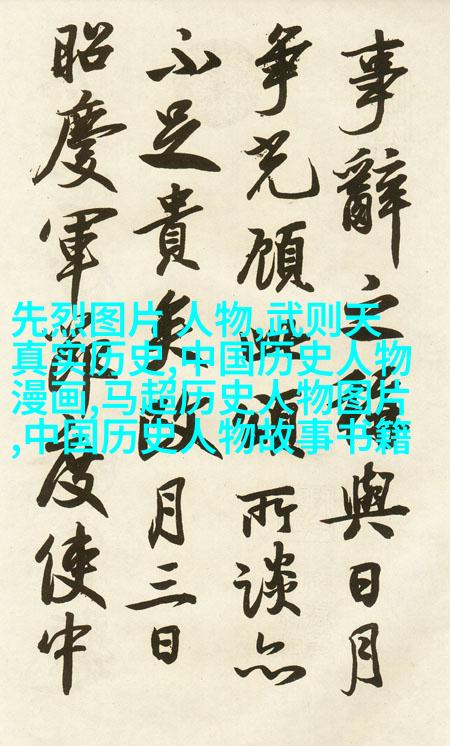 事辭之稱與日月
爭光顧此頌所談亦
不足貴矣月三日
昭慶軍節度使中
先烈图片,人物,武则天
真实历史,中国历史人物
漫画,马超历史人物图片
,中国历史人物故事书籍